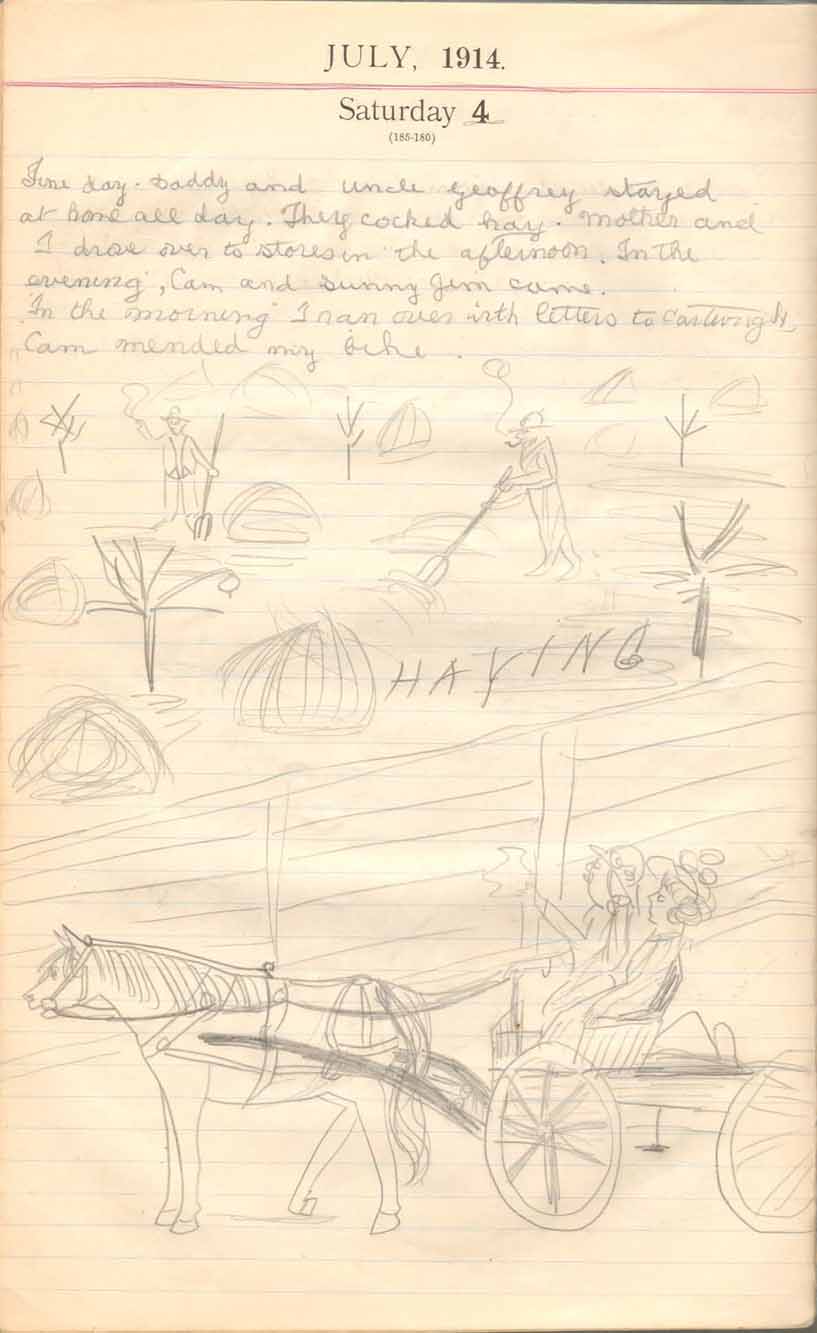 JULY, 1914.
Saturday 4
(185-180)
Fine day. Daddy and uncle Geoffrey stayed
at home all day. They cocked hay. Mother and
I drove over to stores in the afternoon. In the
evening, Cam and Sunny Jim came.
In the morning I ran over with letters to Cartwright,
Cam mended my bike.
HAYING